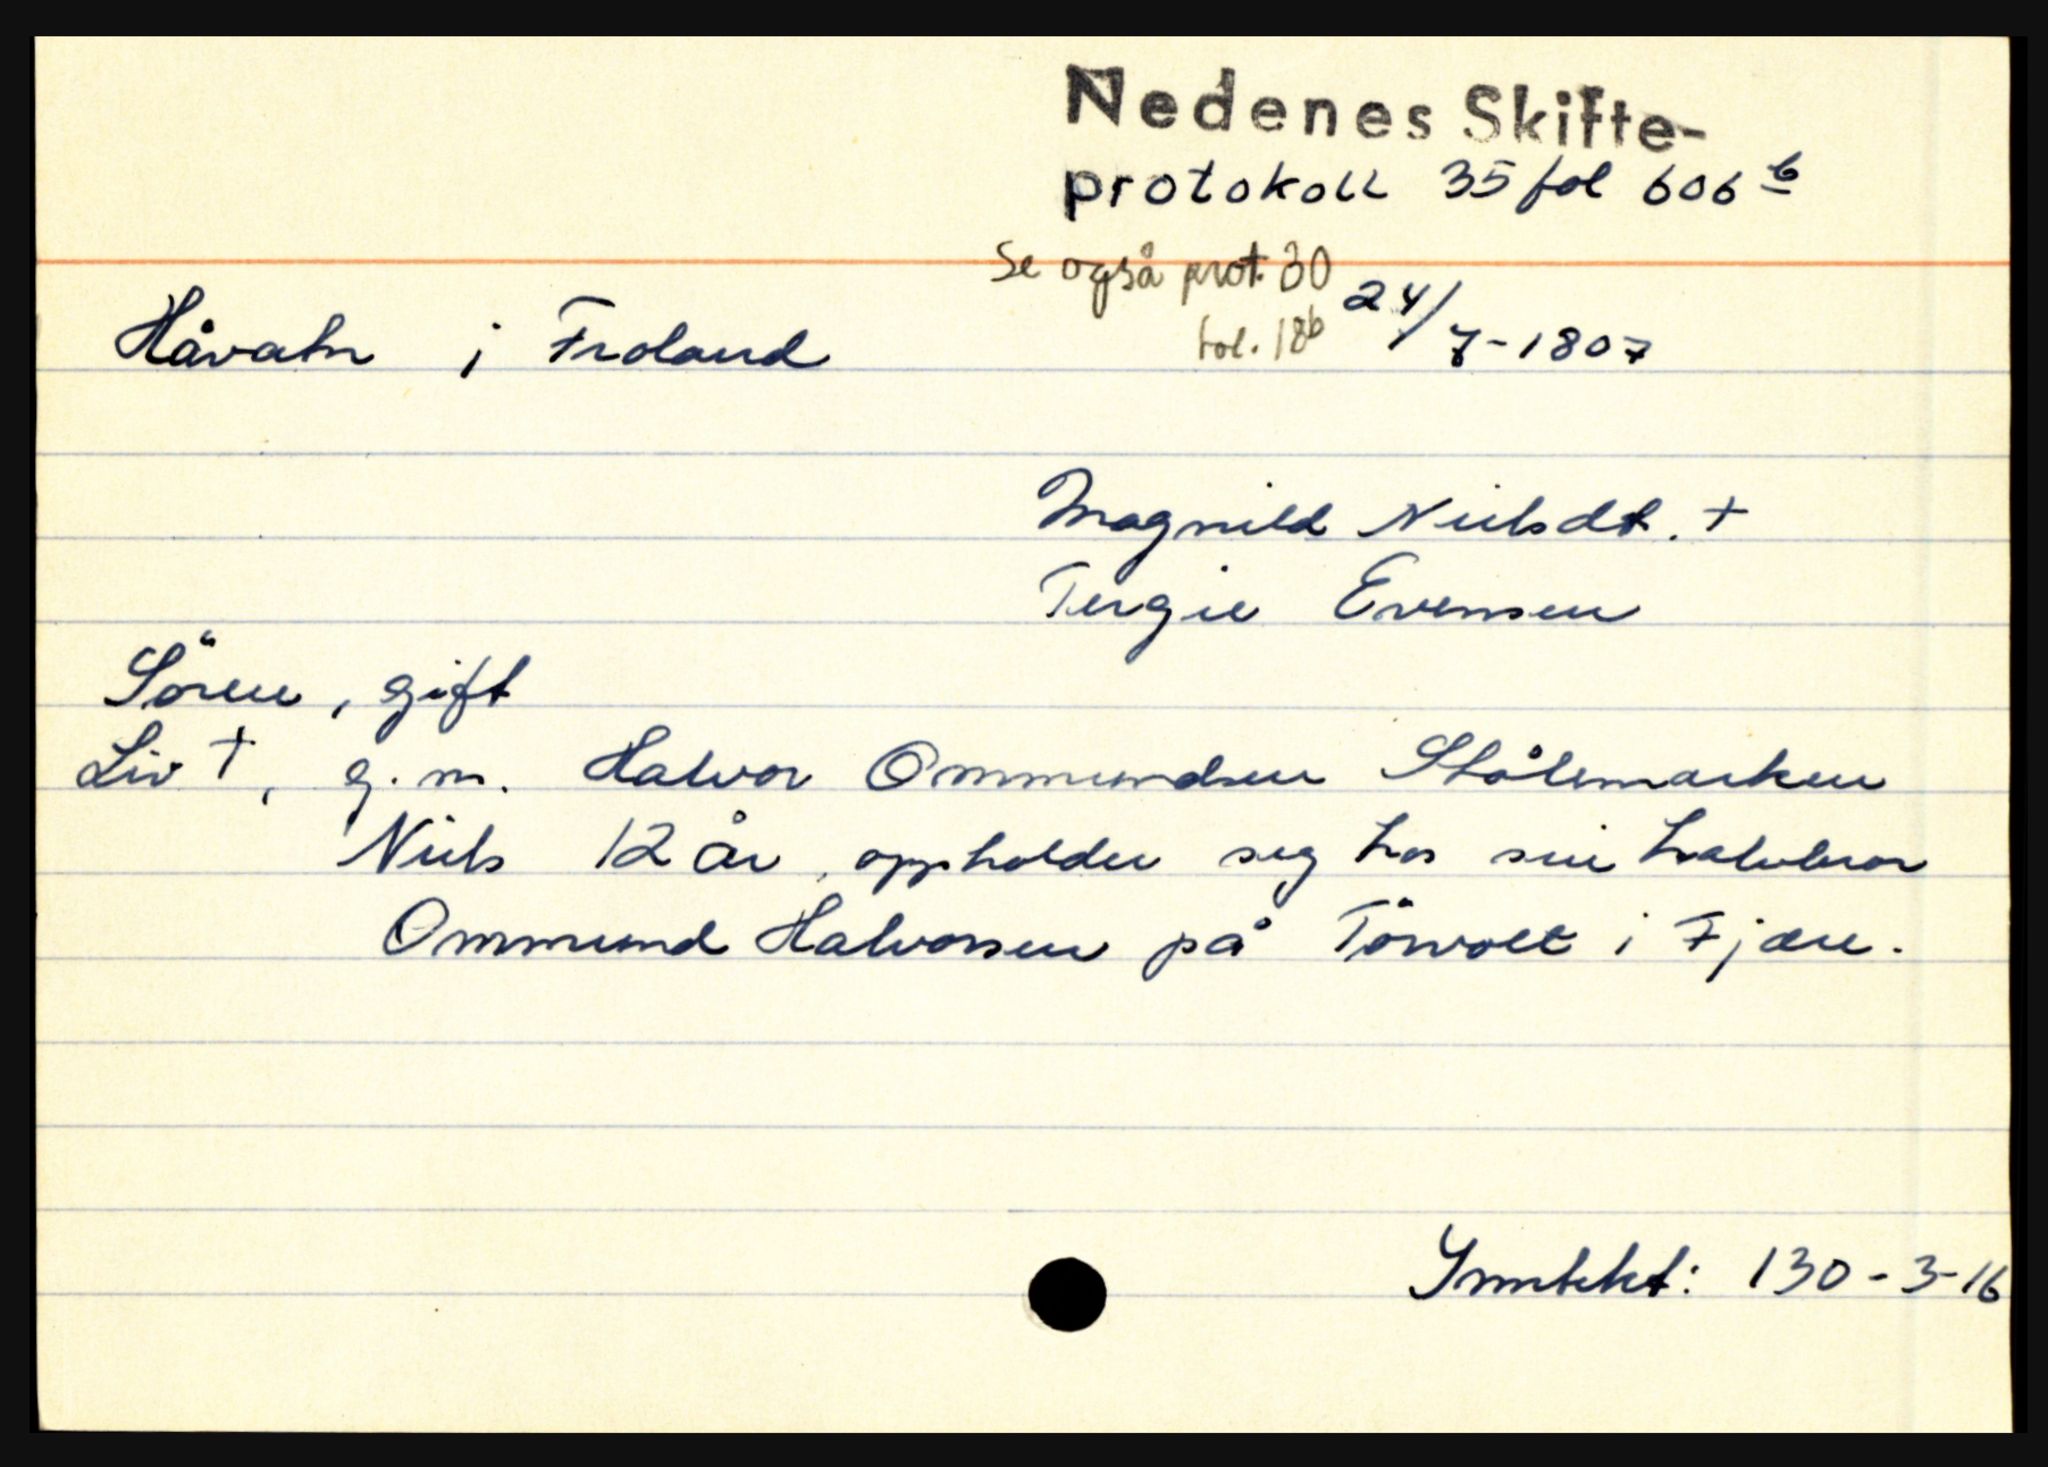 Nedenes Skifte-
protokoll 35 fol 606 b
Se også prot. 30
fol. 18b 24/7-1807
Håvatn i Froland
Magnild Nielsdt. +
Tergie Evensen
Sören, gift
Liv +, g. m. Halvor Ommundsen Stålemarken
Niels 12 år, oppholder seg hos sin halvbror
Ommund Halvorsen på Törvolt i Fjære.
Inntekt: 130-3-16